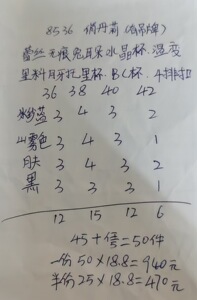 8536 俏丹莉(有吊牌)
蕾丝无痕兔耳朵水晶杯.温变
里料月牙托里杯.BC杯.4排扣
36 38 40 42
蓝 3 4 3 2
山雾色 3 4 3 1
肤 3 4 3 2
黑 3 3 3 1
12 15 12 6
45+ =50件
一份50×18.8=940元
半份25×18.8=470元